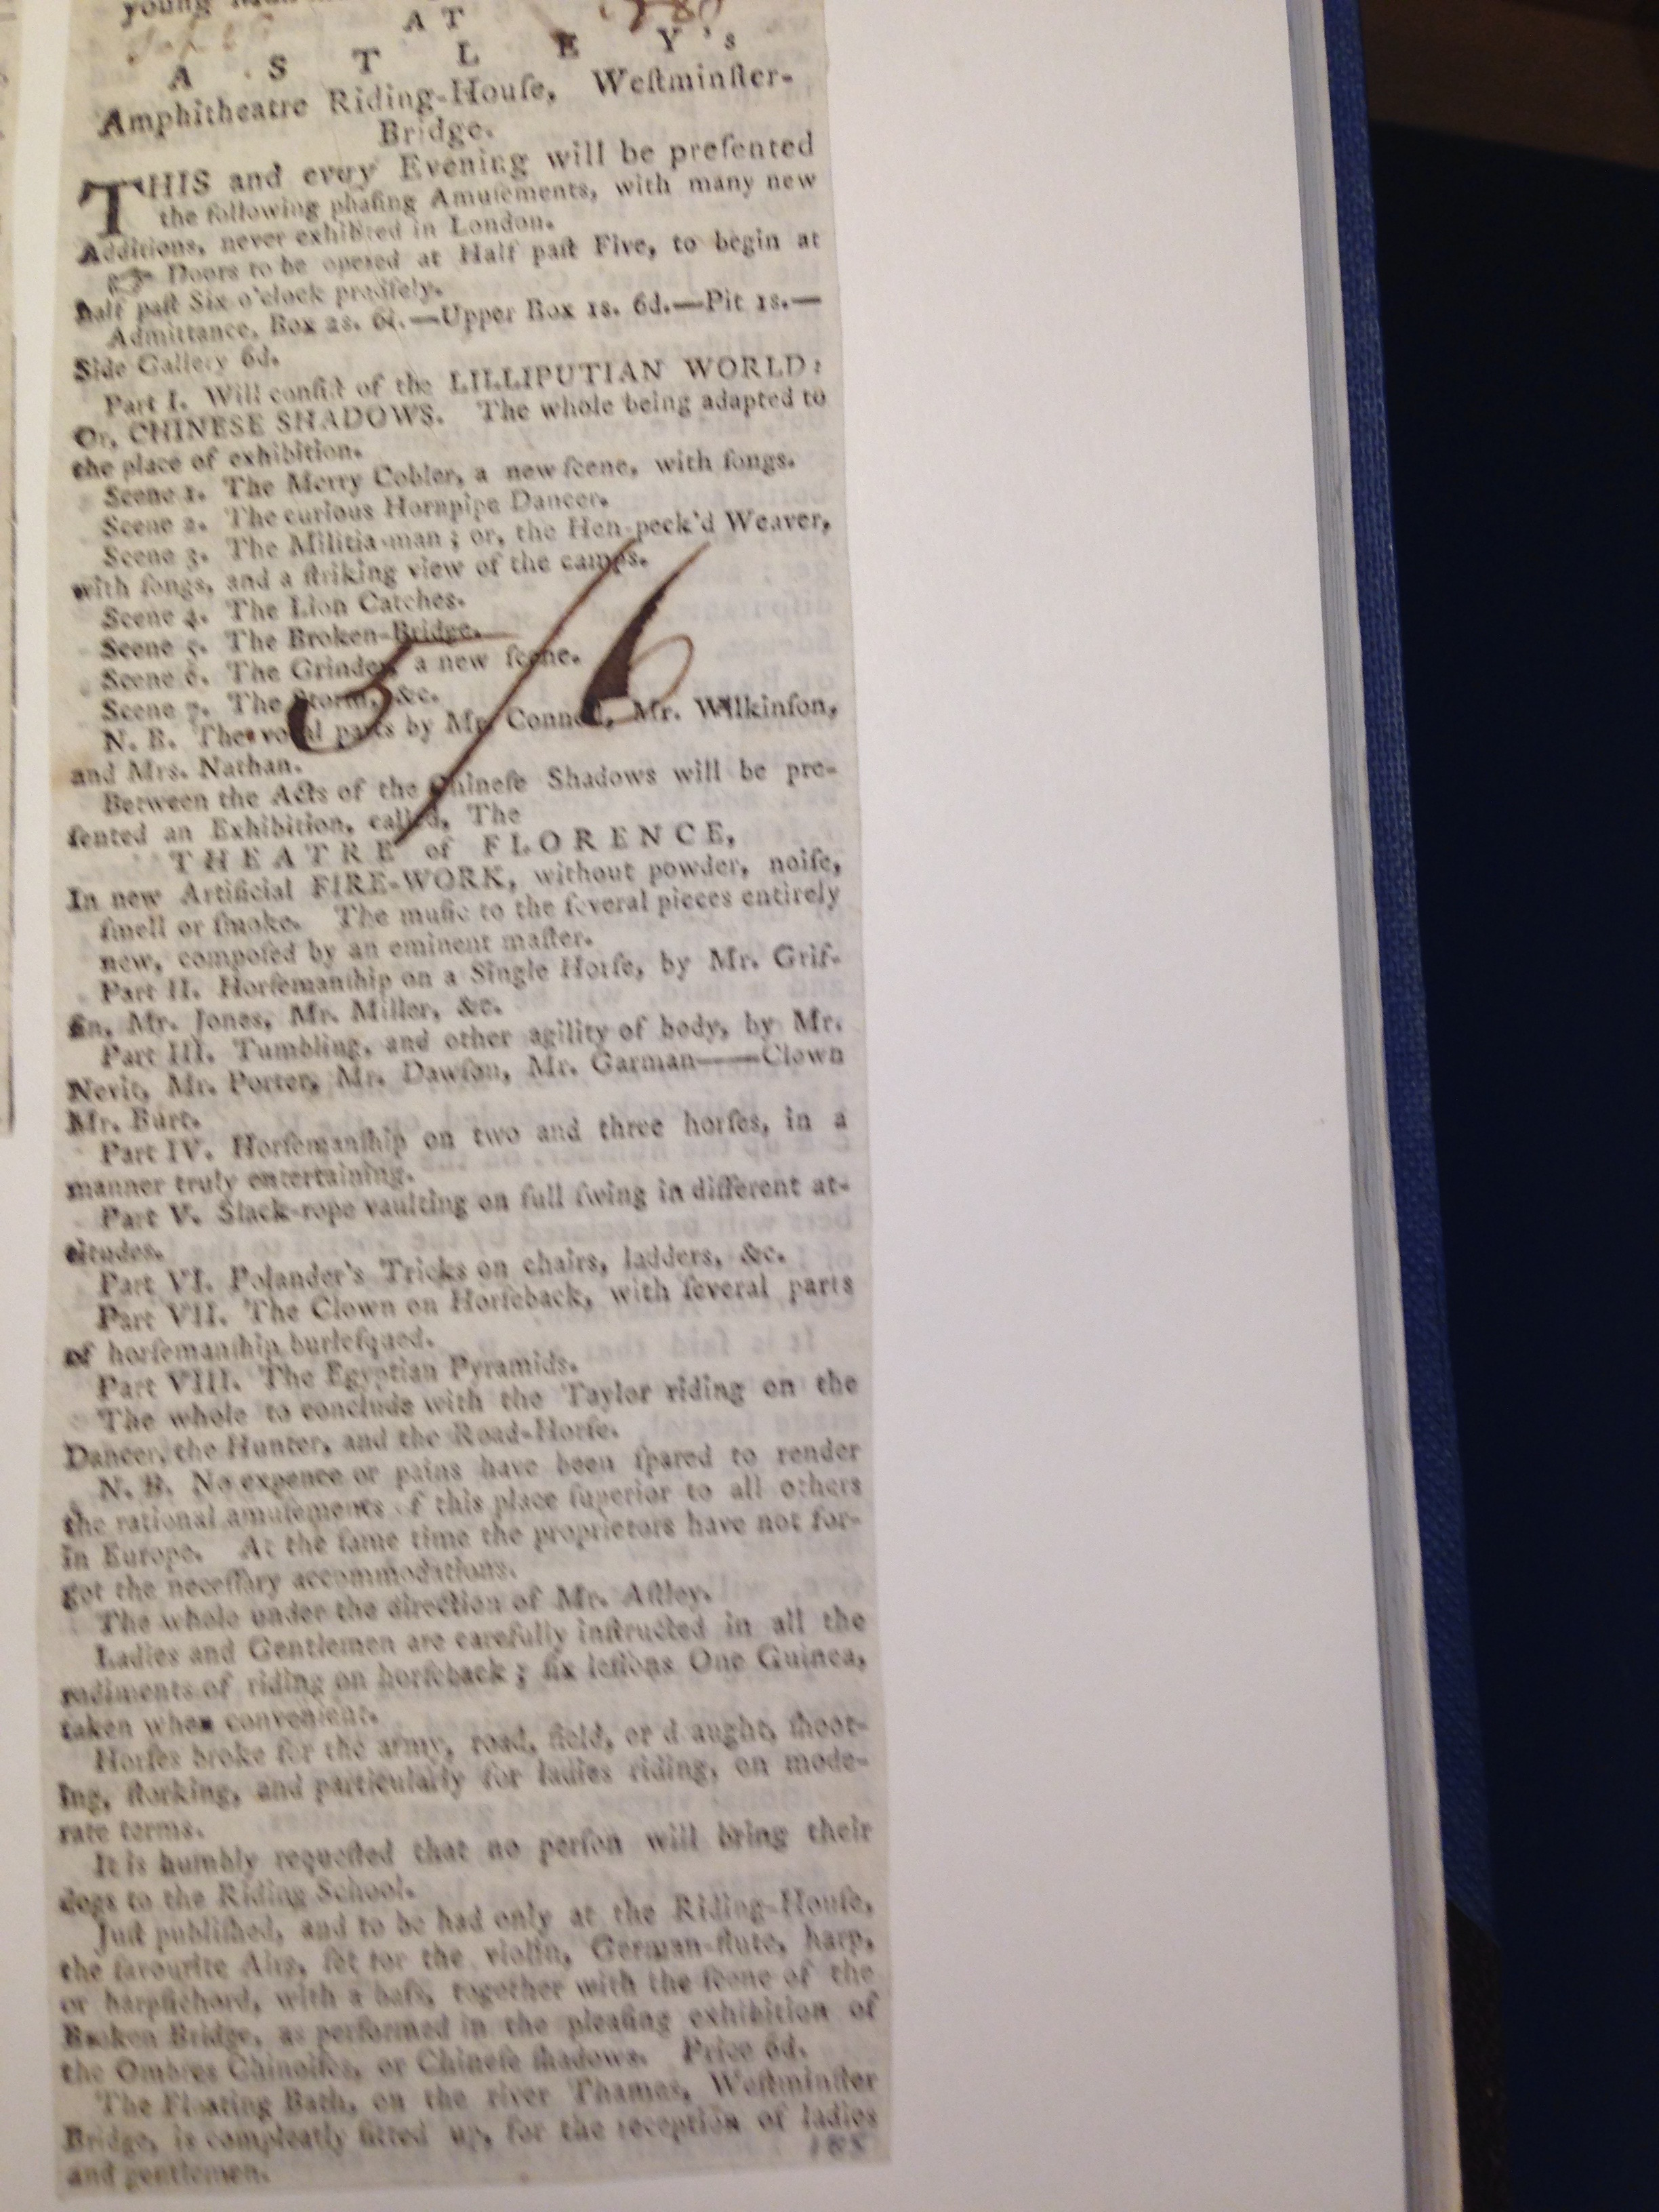 young
AT
ASTLEY's
Amphitheatre Riding-Houſe, Weſtminſter-
Bridge.
THIS and every Evening will be preſented
the following pleaſing Amuſements, with many new
Additions, never exhibited in London.
☞ Doors to be opened at Half paſt Five, to begin at
half paſt Six o'clock preciſely.
Admittance, Box 2s. 6d.—Upper Box 1s. 6d.—Pit 1s.—
Side Gallery 6d.
Part I. Will conſiſt of the LILLIPUTIAN WORLD:
Or, CHINESE SHADOWS. The whole being adapted to
the place of exhibition.
Scene 1. The Merry Cobler, a new ſcene, with ſongs.
Scene 2. The curious Hornpipe Dancer.
Scene 3. The Militia-man; or, the Hen-peck'd Weaver,
with ſongs, and a ſtriking view of the camps.
Scene 4. The Lion Catches.
Scene 5. The Broken-Bridge.
Scene 6. The Grinder, a new ſcene.
Scene 7. The Storm, &c.
N. B. The vocal parts by Mr. Connell, Mr. Wilkinſon,
and Mrs. Nathan.
Between the Acts of the Chineſe Shadows will be pre-
ſented an Exhibition, called, The
THEATRE of FLORENCE,
In new Artificial FIRE-WORK, without powder, noiſe,
ſmell or ſmoke. The muſic to the ſeveral pieces entirely
new, compoſed by an eminent maſter.
Part II. Horſemanſhip on a Single Horſe, by Mr. Grif-
fin, Mr. Jones, Mr. Miller, &c.
Part III. Tumbling, and other agility of body, by Mr.
Nevit, Mr. Porter, Mr. Dawſon, Mr. Garman——Clown
Mr. Burt.
Part IV. Horſemanſhip on two and three horſes, in a
manner truly entertaining.
Part V. Slack-rope vaulting on full ſwing in different at-
titudes.
Part VI. Polander's Tricks on chairs, ladders, &c.
Part VII. The Clown on Horſeback, with ſeveral parts
of horſemanſhip burleſqued.
Part VIII. The Egyptian Pyramids.
The whole to conclude with the Taylor riding on the
Dancer, the Hunter, and the Road-Horſe.
N. B. No expence or pains have been ſpared to render
the rational amuſements of this place ſuperior to all others
in Europe. At the ſame time the proprietors have not for-
got the neceſſary accommodations.
The whole under the direction of Mr. Aſtley.
Ladies and Gentlemen are carefully inſtructed in all the
rudiments of riding on horſeback; ſix leſſons One Guinea,
taken when convenient.
Horſes broke for the army, road, field, or d aught, ſhoot-
ing, ſtorking, and particularly for ladies riding, on mode-
rate terms.
It is humbly requeſted that no perſon will bring their
dogs to the Riding School.
Juſt publiſhed, and to be had only at the Riding-Houſe,
the favourite Airs, ſet for the violin, German-flute, harp,
or harpſichord, with a baſs, together with the ſcene of the
Broken Bridge, as performed in the pleaſing exhibition of
the Ombres Chinoiſes, or Chineſe ſhadows. Price 6d.
The Floating Bath, on the river Thames, Weſtminſter
Bridge, is compleatly fitted up, for the reception of ladies
and gentlemen.